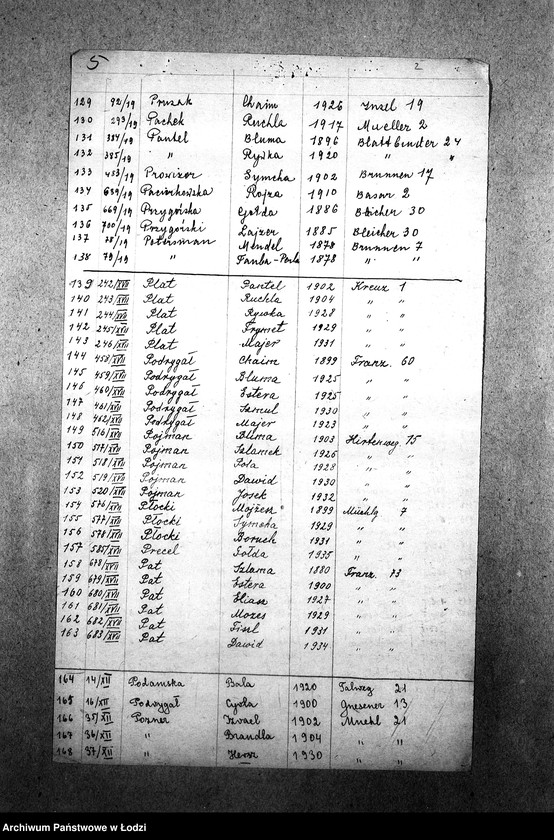 5 2
129 92/19 Prusak Chaim 1926 Insel 19
130 293/19 Pachek Ruchla 1917 Mueller 2
131 384/19 Pantel Bluma 1896 Blattbinder 24
132 385/19 " Rywka 1920 " "
133 453/19 Prowizor Symcha 1902 Brunnen 17
134 639/19 Paciorkowska Rojza 1910 Basar 2
135 669/19 Przygórska Gołda 1886 Bleicher 30
136 700/19 Przygórski Lajzer 1885 Bleicher 30
137 78/19 Petersman Mendel 1878 Brunnen 7
138 79/19 " Fanba-Perla 1878 " "
139 242/XVII Płat Pantel 1902 Kreuz 1
140 243/XVII Płat Ruchla 1904 " "
141 244/XVII Płat Rywka 1928 " "
142 245/XVII Płat Frymet 1929 " "
143 246/XVII Płat Majer 1931 " "
144 458/XVII Podrygał Chaim 1899 Franz. 60
145 459/XVII Podrygał Bluma 1925 " "
146 460/XVII Podrygał Estera 1925 " "
147 461/XVII Podrygał Samul 1930 " "
148 462/XVII Podrygał Majer 1923 " "
149 516/XVII Pojman Bluma 1903 Hirtenweg. 15
150 517/XVII Pojman Szlamek 1926 " "
151 518/XVII Pojman Pola 1928 " "
152 519/XVII Pojman Dawid 1930 " "
153 520/XVII Pojman Josek 1932 " "
154 576/XVII Płocki Mojżesz 1899 Muehlg 7
155 577/XVII Płocki Symcha 1929 " "
156 578/XVII Płocki Boruch 1931 " "
157 585/XVII Precel Gołda 1935 " "
158 678/XVII Pat Szlama 1880 Franz. 73
159 679/XVII Pat Estera 1900 " "
160 680/XVII Pat Eliasz 1927 " "
161 681/XVII Pat Mozes 1929 " "
162 682/XVII Pat Fisl 1931 " "
163 683/XVII Pat Dawid 1934 " "
164 14/XII Podamska Bala 1920 Talweg 21
165 16/XII Podrygał Cywla 1900 Gnesener 13
166 35/XII Pozner Izrael 1902 Muehl 21
167 36/XII " Brandla 1904 " "
168 37/XII " Hersz 1930 " "
Archiwum Państwowe w Łodzi